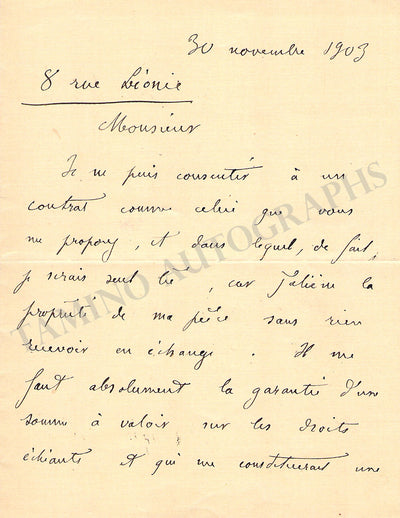 30 novembre 1903
8 rue Léonie
Monsieur
Je ne puis consentir à un
contrat comme celui que vous
me proposez, et dans lequel, de fait,
je serais seul lié, car j'aliène la
propriété de ma pièce sans rien
recevoir en échange. Il me
faut absolument la garantie d'une
somme à valoir sur les droits
échéants et qui me constituerait une
TAMINO AUTOGRAPHS